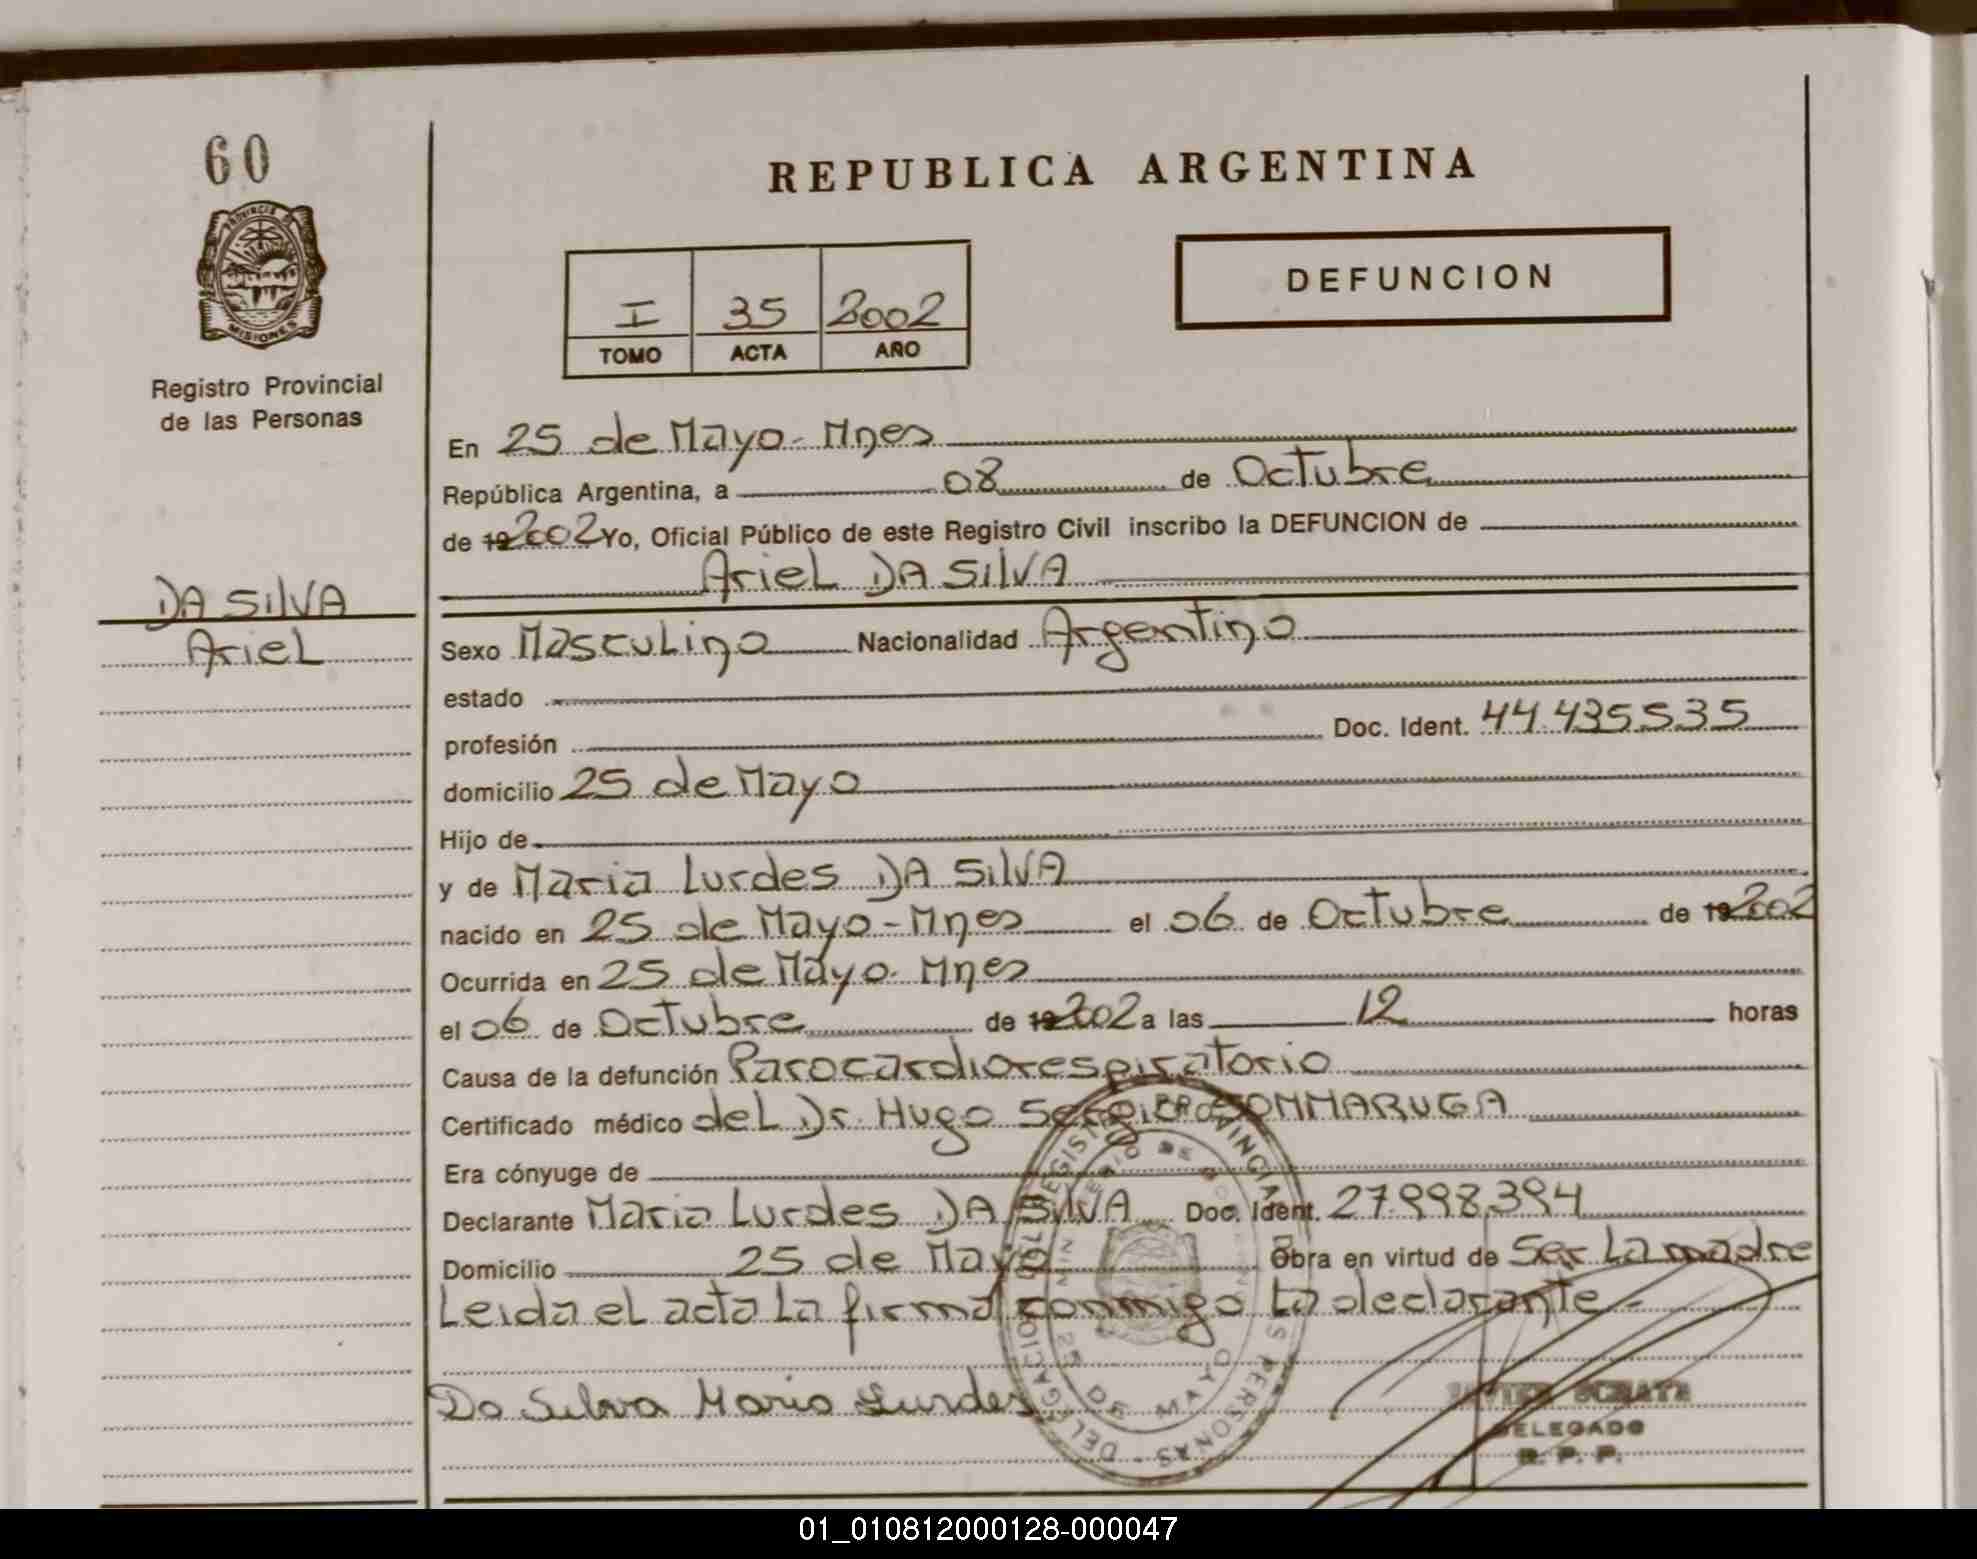 60
PROVINCIA DE
MISIONES
Registro Provincial
de las Personas
DA SILVA
Ariel
REPUBLICA ARGENTINA
I 35 2002
TOMO ACTA AÑO
DEFUNCION
En 25 de Mayo - Mnes
República Argentina, a 08 de Octubre
de 19 2002 Yo, Oficial Público de este Registro Civil inscribo la DEFUNCION de
Ariel DA SILVA
Sexo Masculino Nacionalidad Argentino
estado
profesión Doc. Ident. 44.435.535
domicilio 25 de Mayo
Hijo de
y de Maria Lurdes DA SILVA
nacido en 25 de Mayo - Mnes el 06 de Octubre de 19 2002
Ocurrida en 25 de Mayo - Mnes
el 06 de Octubre de 19 2002 a las 12 horas
Causa de la defunción Parocardiorespiratorio
Certificado médico del Dr. Hugo Sergio SOMMARUGA
Era cónyuge de
Declarante Maria Lurdes DA SILVA Doc. Ident. 27.998.394
Domicilio 25 de Mayo Obra en virtud de Ser La madre
Leida el acta La firma conmigo La declarante -
Da Silva Maria Lurdes
DELEGADO
R. P. P.
25 DE MAYO
01_010812000128-000047